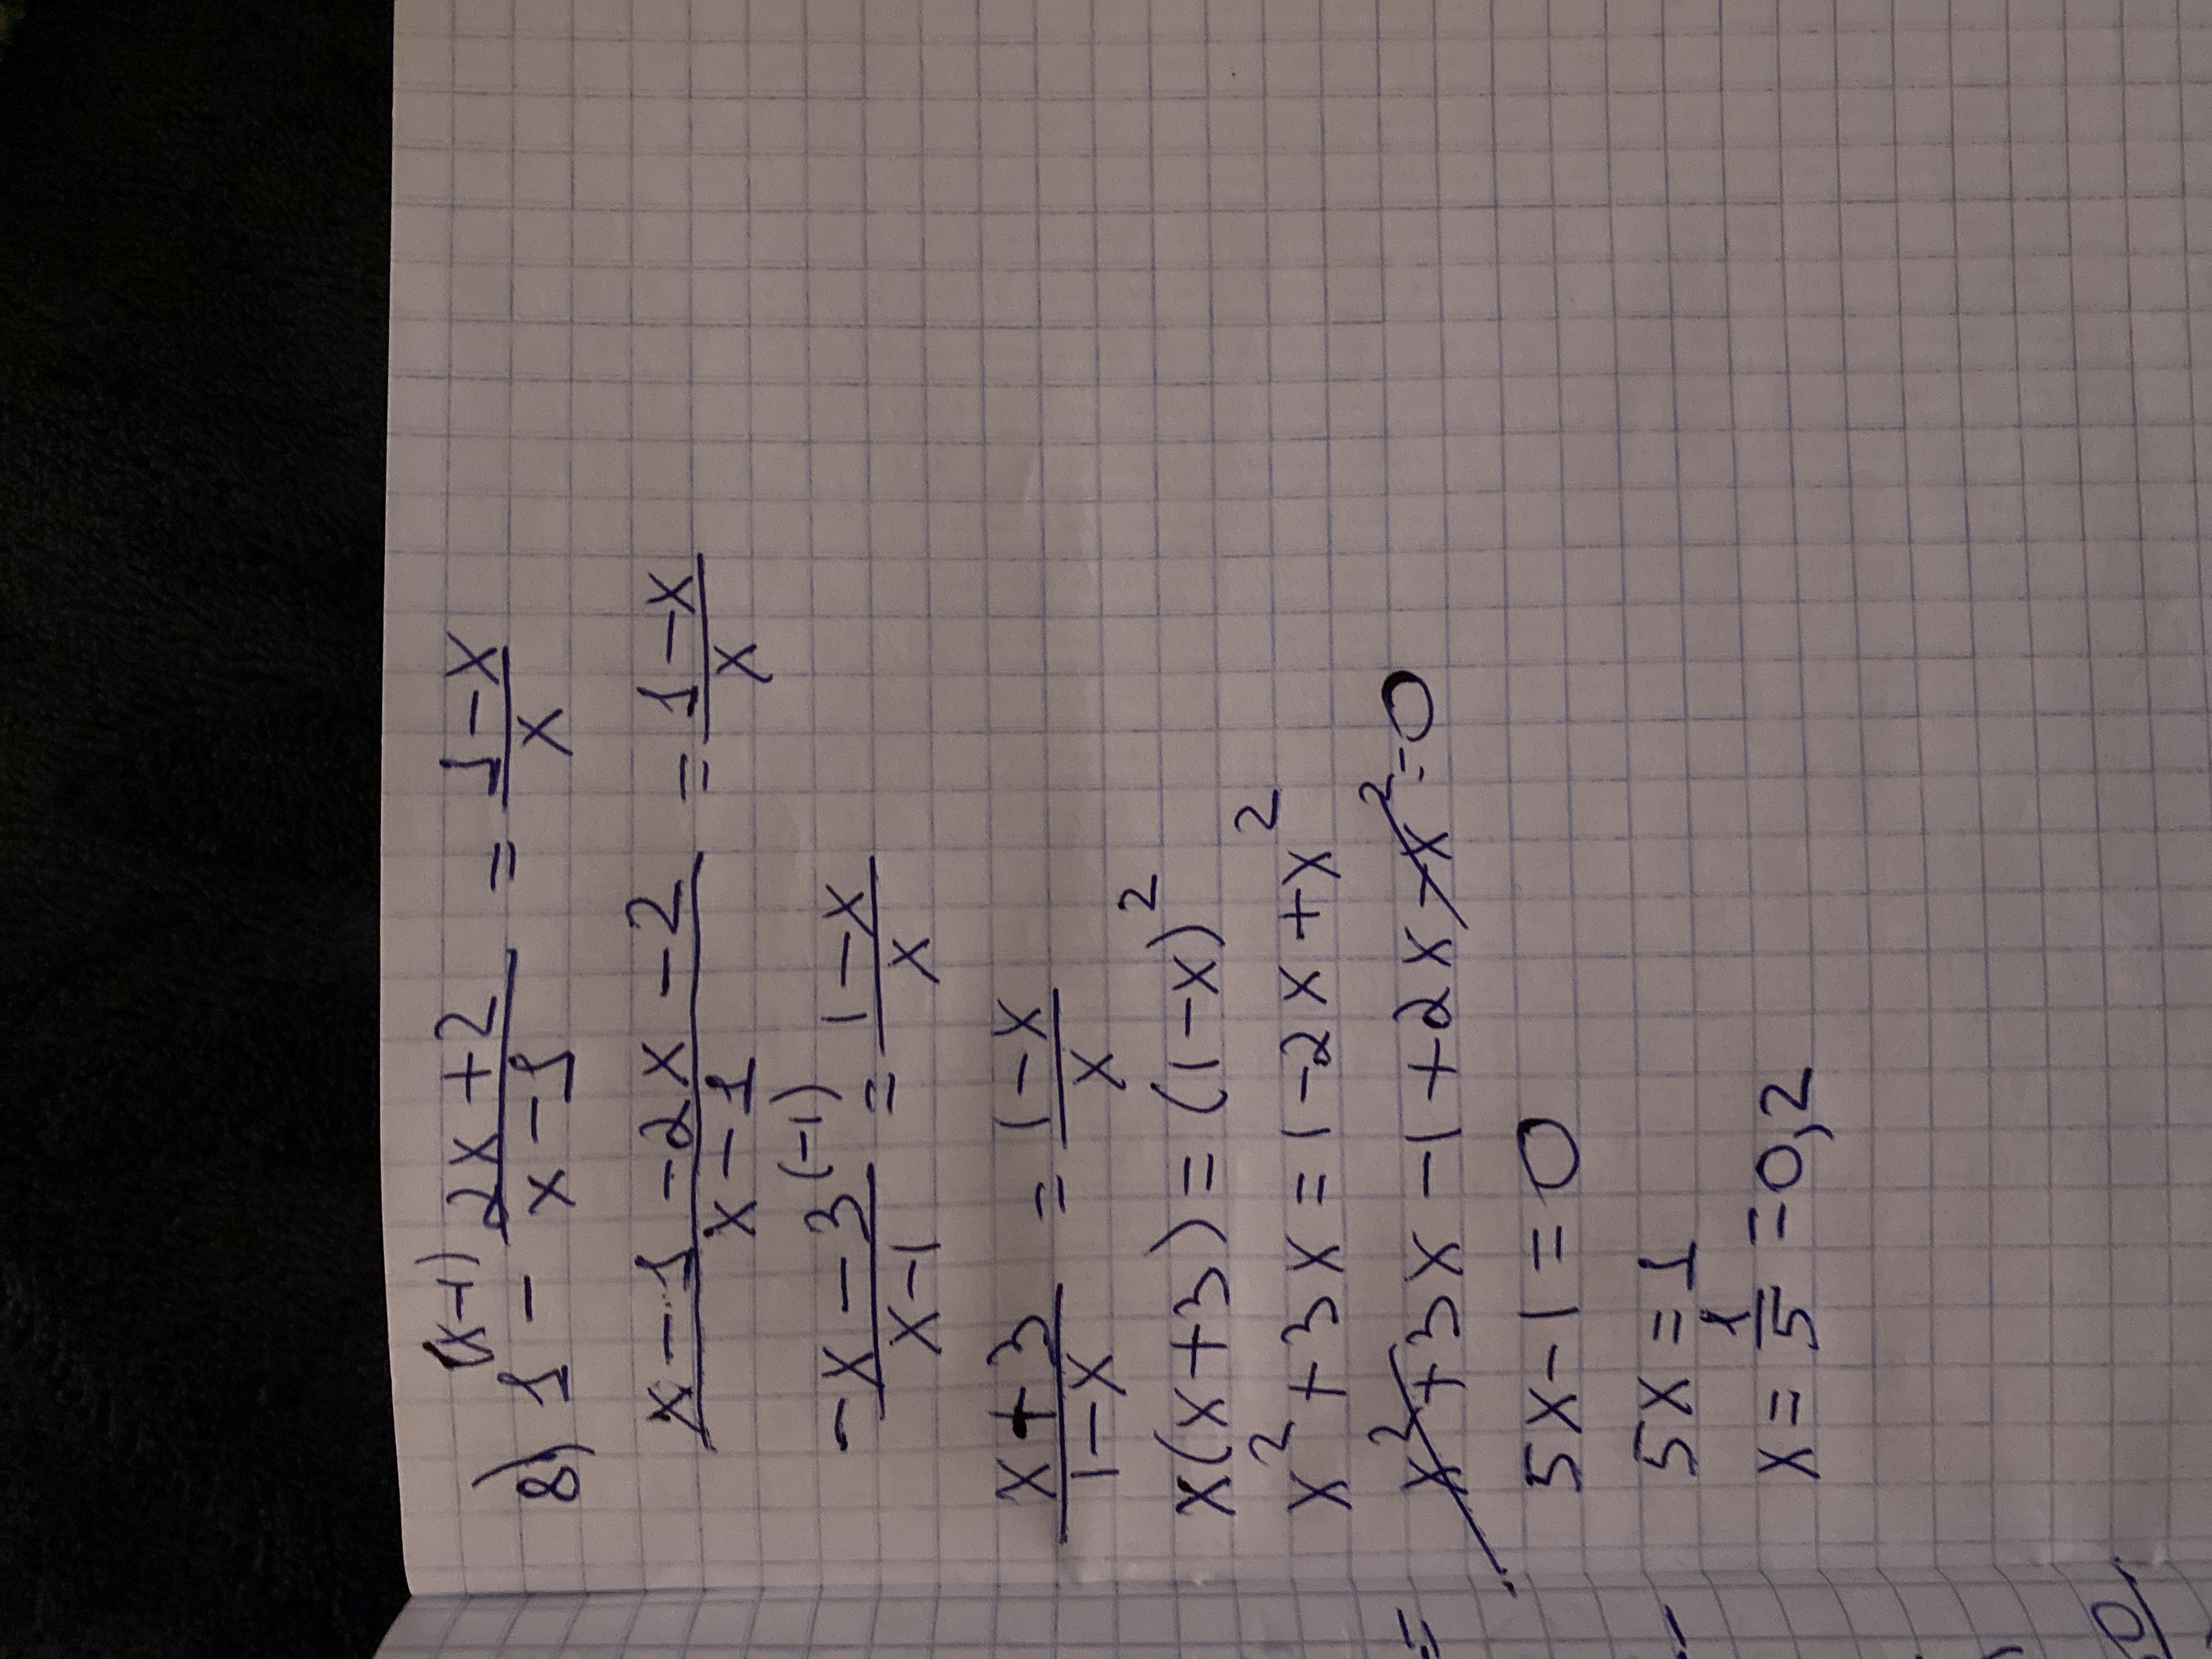 8) 1^(x-1) - (2x+2)/(x-1) = (1-x)/x
(x-1-2x-2)/(x-1) = (1-x)/x
(-x-3)/(x-1) ^(-1) = (1-x)/x
(x+3)/(1-x) = (1-x)/x
x(x+3) = (1-x)²
x²+3x = 1-2x+x²
x²+3x-1+2x-x²=0
5x-1=0
5x=1
x=1/5=0,2